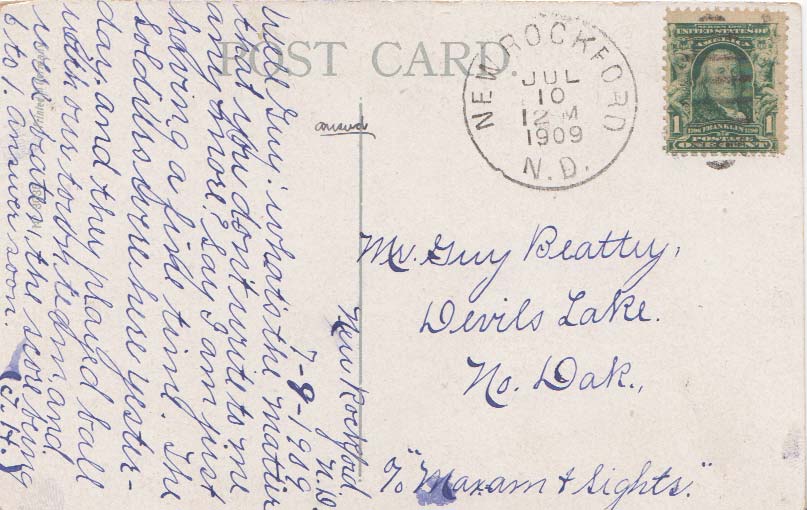 POST CARD.
NEW ROCKFORD
JUL
10
12 M
1909
N.D.
SERIES 1902
UNITED STATES OF
AMERICA
1
1706 FRANKLIN 1790
1
POSTAGE
ONE CENT
New Rockford
N.D.
7-9-1909
Guy: whats the matter
that you don't write to me
any more? Say I am just
having a fine time. The
Soldiers were here yester-
day, and they played ball
with our to day, and
were beaten, the score being
6 to 1. answer soon.
J.H.
answd
Mr. Guy Beatty,
Devils Lake.
No. Dak.,
c/o "Maxam & Sights."